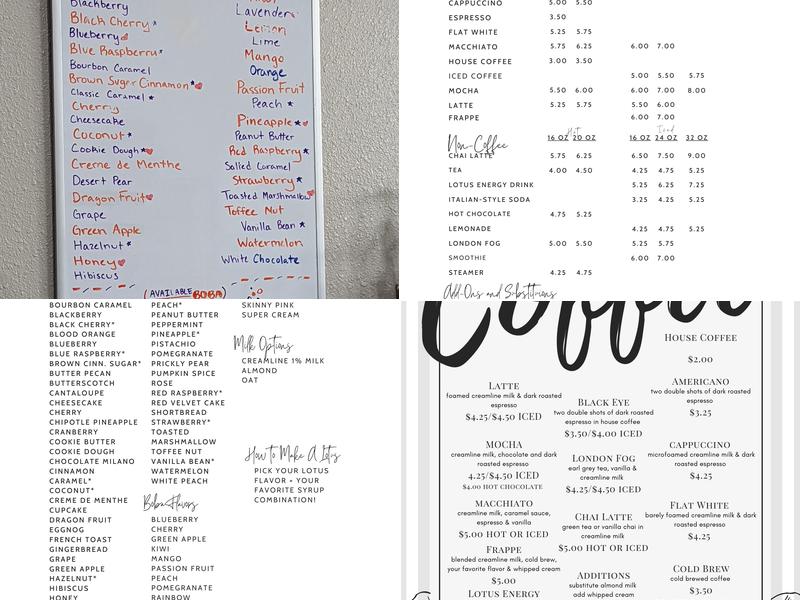 Blackberry
Black Cherry*
Blueberry
Blue Raspberry*
Bourbon Caramel
Brown Sugar Cinnamon*
Classic Caramel*
Cherry
Cheesecake
Coconut*
Cookie Dough*
Creme de Menthe
Desert Pear
Dragon Fruit
Grape
Green Apple
Hazelnut*
Honey
Hibiscus
Lavender
Lemon
Lime
Mango
Orange
Passion Fruit
Peach *
Pineapple*
Peanut Butter
Red Raspberry*
Salted Caramel
Strawberry*
Toasted Marshmallow
Toffee Nut
Vanilla Bean *
Watermelon
White Chocolate
(AVAILABLE BOBA)
CAPPUCCINO 5.00 5.50
ESPRESSO 3.50
FLAT WHITE 5.25 5.75
MACCHIATO 5.75 6.25 6.00 7.00
HOUSE COFFEE 3.00 3.50
ICED COFFEE 5.00 5.50 5.75
MOCHA 5.50 6.00 6.00 7.00 8.00
LATTE 5.25 5.75 5.50 6.00
FRAPPE 6.00 7.00
Hot Iced
Non-Coffee 16 OZ 20 OZ 16 OZ 24 OZ 32 OZ
CHAI LATTE 5.75 6.25 6.50 7.50 9.00
TEA 4.00 4.50 4.25 4.75 5.25
LOTUS ENERGY DRINK 5.25 6.25 7.25
ITALIAN-STYLE SODA 3.25 4.25 5.25
HOT CHOCOLATE 4.75 5.25
LEMONADE 4.25 4.75 5.25
LONDON FOG 5.00 5.50 5.25 5.75
SMOOTHIE 6.00 7.00
STEAMER 4.25 4.75
Add-Ons and Substitutions
BOURBON CARAMEL
BLACKBERRY
BLACK CHERRY*
BLOOD ORANGE
BLUEBERRY
BLUE RASPBERRY*
BROWN CINN. SUGAR*
BUTTER PECAN
BUTTERSCOTCH
CANTALOUPE
CHEESECAKE
CHERRY
CHIPOTLE PINEAPPLE
CRANBERRY
COOKIE BUTTER
COOKIE DOUGH
CHOCOLATE MILANO
CINNAMON
CARAMEL*
COCONUT*
CREME DE MENTHE
CUPCAKE
DRAGON FRUIT
EGGNOG
FRENCH TOAST
GINGERBREAD
GRAPE
GREEN APPLE
HAZELNUT*
HIBISCUS
HONEY
PEACH*
PEANUT BUTTER
PEPPERMINT
PINEAPPLE*
PISTACHIO
POMEGRANATE
PRICKLY PEAR
PUMPKIN SPICE
ROSE
RED RASPBERRY*
RED VELVET CAKE
SHORTBREAD
STRAWBERRY*
TOASTED
MARSHMALLOW
TOFFEE NUT
VANILLA BEAN*
WATERMELON
WHITE PEACH
Boba Flavors
BLUEBERRY
CHERRY
GREEN APPLE
KIWI
MANGO
PASSION FRUIT
PEACH
POMEGRANATE
RAINBOW
SKINNY PINK
SUPER CREAM
Milk Options
CREAMLINE 1% MILK
ALMOND
OAT
How to Make A Lotus
PICK YOUR LOTUS
FLAVOR + YOUR
FAVORITE SYRUP
COMBINATION!
Coffee
LATTE
foamed creamline milk & dark roasted
espresso
$4.25/$4.50 ICED
MOCHA
creamline milk, chocolate and dark
roasted espresso
4.25/$4.50 ICED
$4.00 HOT CHOCOLATE
MACCHIATO
creamline milk, caramel sauce,
espresso & vanilla
$5.00 HOT OR ICED
FRAPPE
blended creamline milk, cold brew,
your favorite flavor & whipped cream
$5.00
LOTUS ENERGY
BLACK EYE
two double shots of dark roasted
espresso in house coffee
$3.50/$4.00 ICED
LONDON FOG
earl grey tea, vanilla &
creamline milk
$4.25/$4.50 ICED
CHAI LATTE
green tea or vanilla chai in
creamline milk
$5.00 HOT OR ICED
ADDITIONS
substitute almond milk
add whipped cream
HOUSE COFFEE
$2.00
AMERICANO
two double shots of dark roasted
espresso
$3.25
CAPPUCCINO
microfoamed creamline milk & dark
roasted espresso
$4.25
FLAT WHITE
barely foamed creamline milk & dark
roasted espresso
$4.25
COLD BREW
cold brewed coffee
$3.50